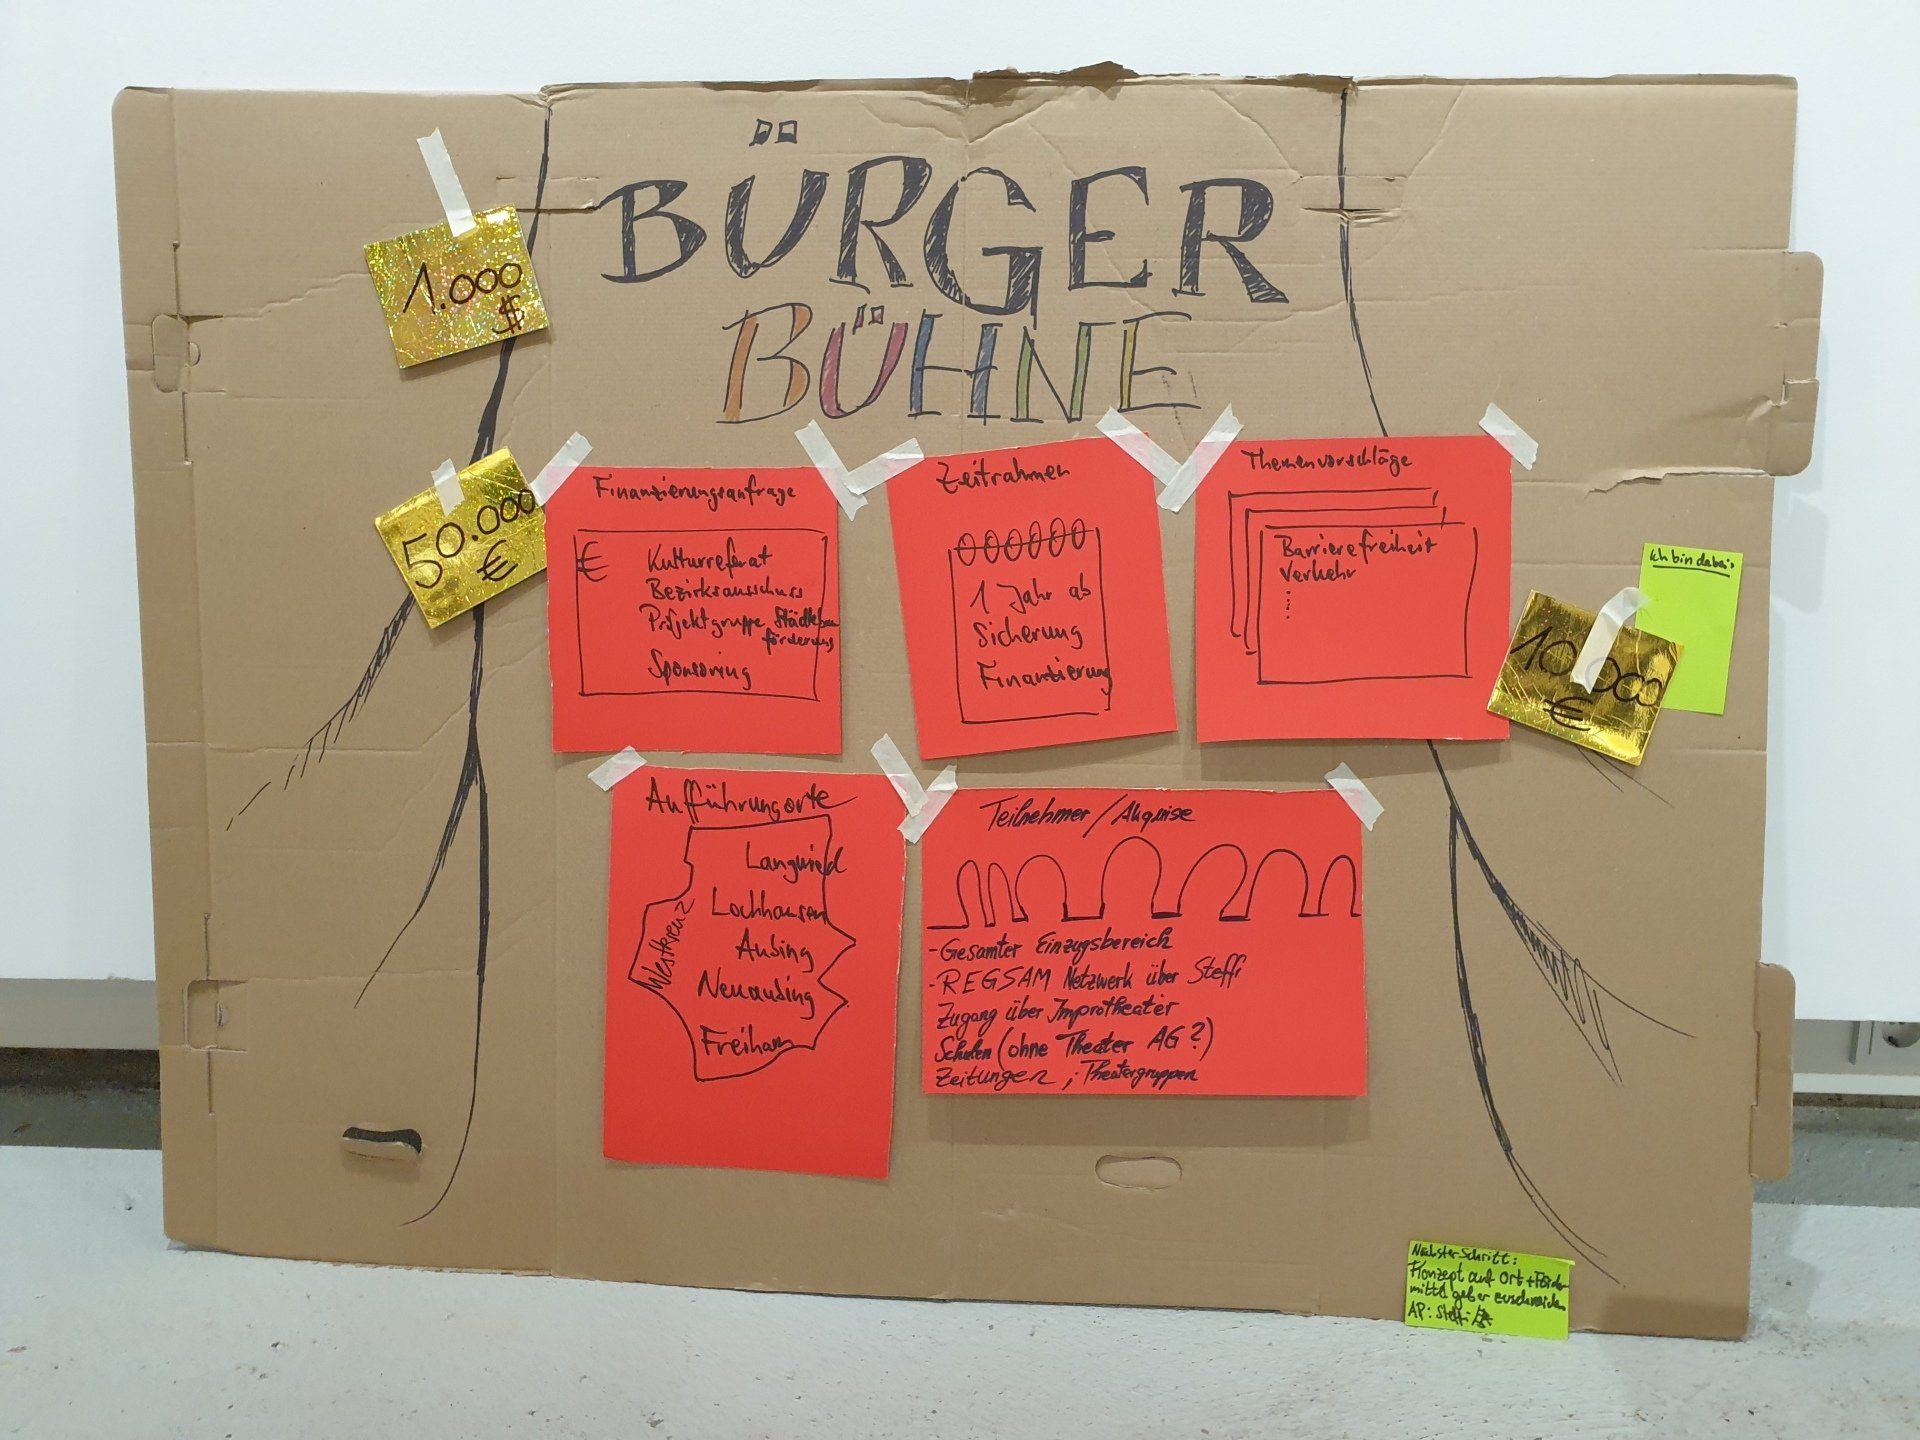 BÜRGER
BÜHNE
1.000
$
50.000
€
Finanzierungsanfrage
€ Kulturreferat
Bezirksausschuss
Projektgruppe Städtebau
förderung
Sponsoring
Zeitrahmen
1 Jahr ab
Sicherung
Finanzierung
Themenvorschläge
Barrierefreiheit
Verkehr
Ich bin dabei:
10.000
€
Aufführungorte
Westkreuz
Langwied
Lochhausen
Aubing
Neuaubing
Freiham
Teilnehmer/Akquise
- Gesamter Einzugsbereich
- REGSAM Netzwerk über Steffi
Zugang über Improtheater
Schulen (ohne Theater AG?)
Zeitungen, Theatergruppen
Nächster Schritt:
Konzept auf Ort + Förder
mittelgeber zuschneiden
AP: Steffi